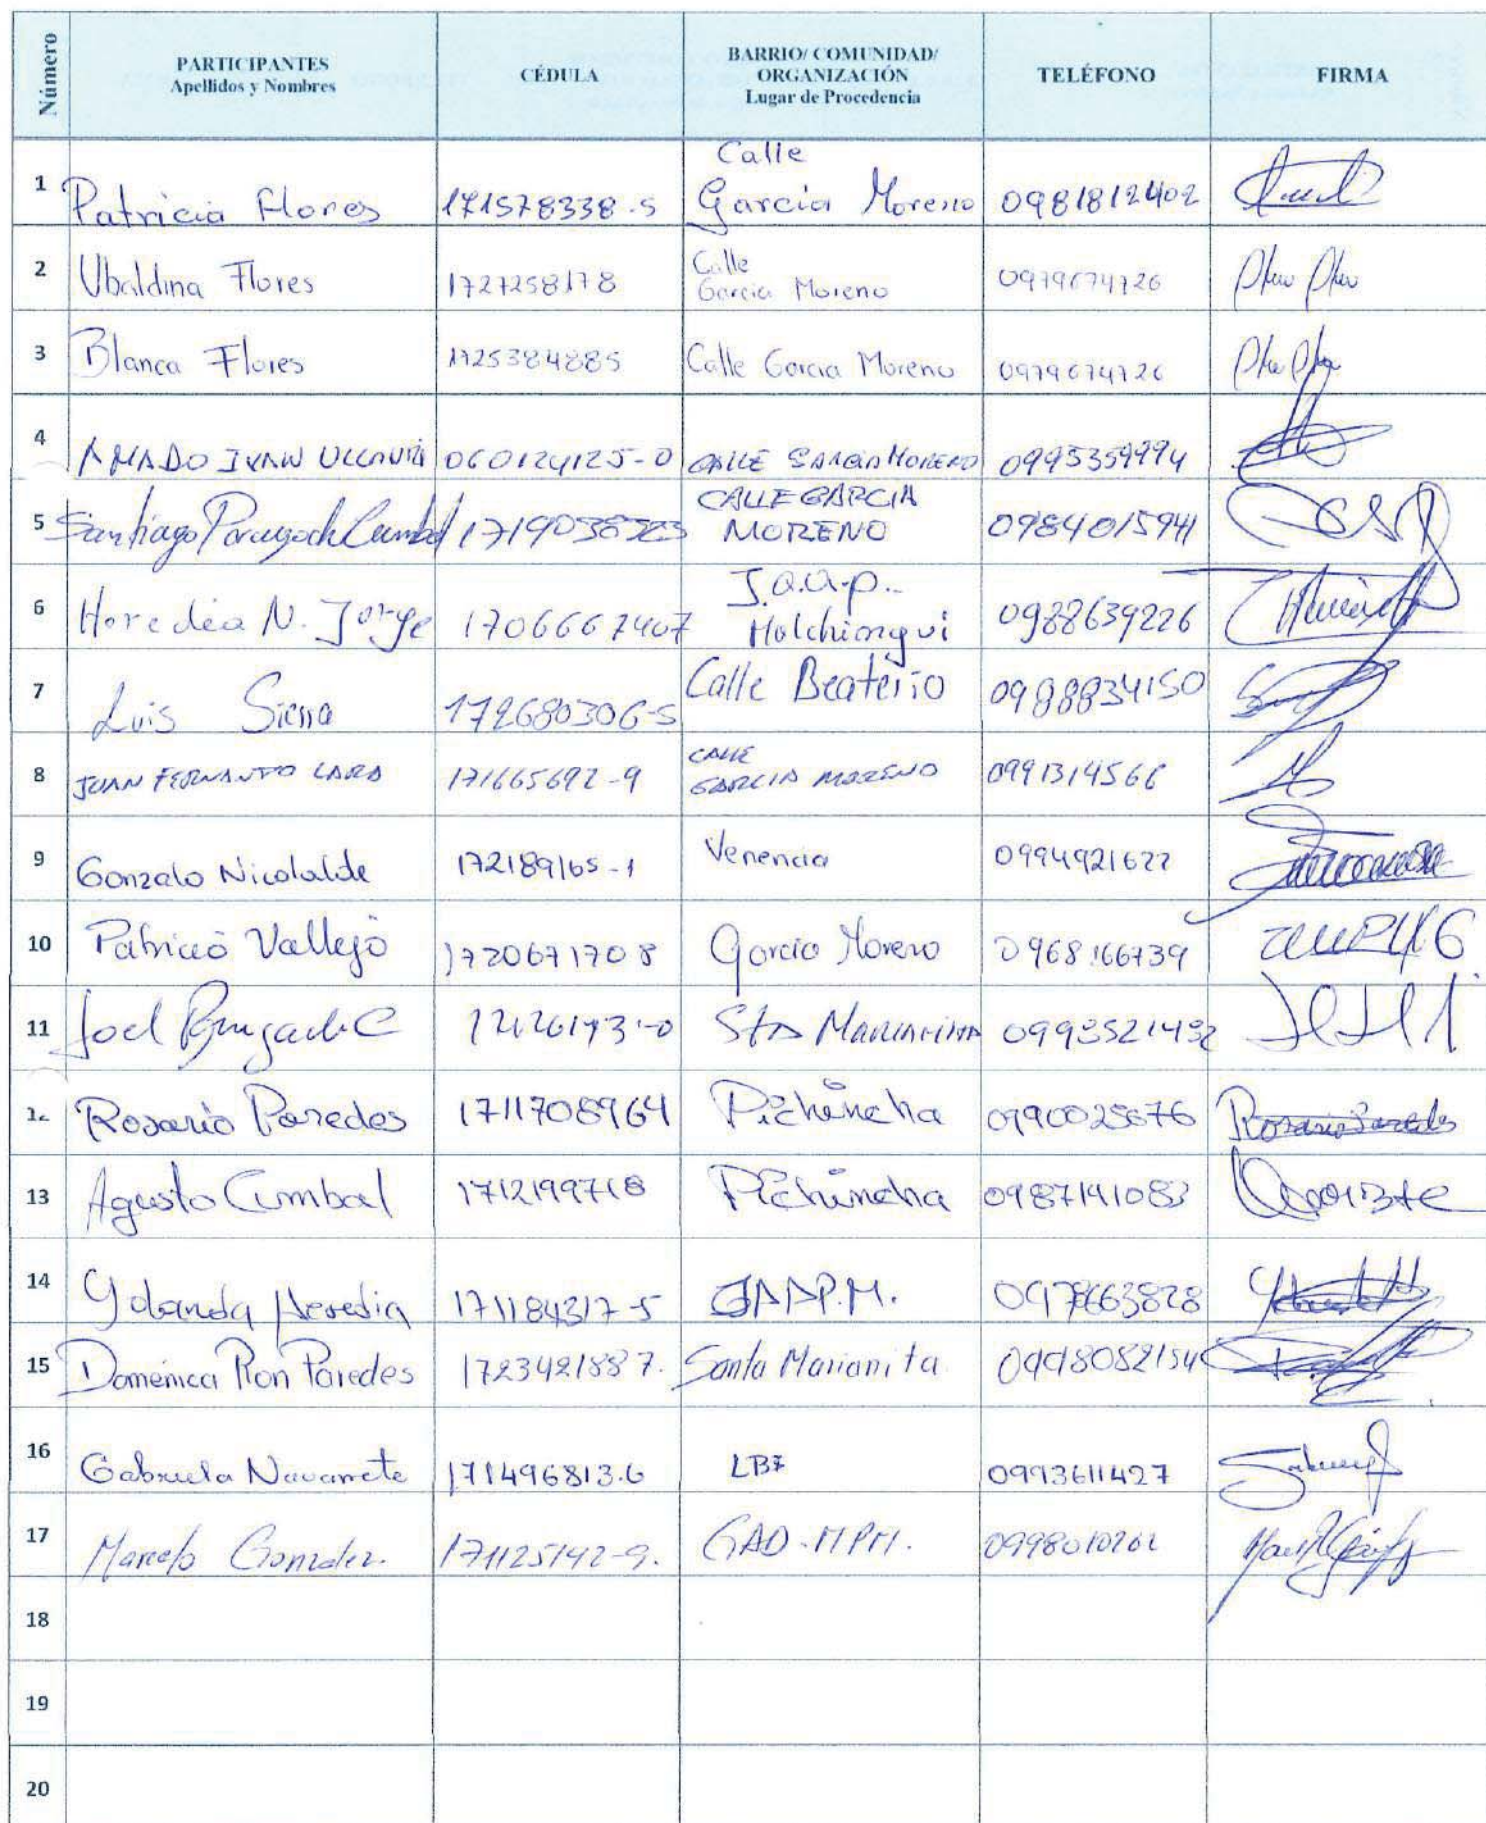 Número
PARTICIPANTES
Apellidos y Nombres
CÉDULA
BARRIO/ COMUNIDAD/
ORGANIZACIÓN
Lugar de Procedencia
TELÉFONO
FIRMA
1 Patricia Flores 171578338-5 Calle
Garcia Moreno 0981812402
2 Ubaldina Flores 1727258178 Calle
Garcia Moreno 0979674726
3 Blanca Flores 1725384885 Calle Garcia Moreno 0979674726
4 AMADO IVAN 060124125-0 CALLE GARCIA MORENO 0995359994
5 Santiago CALLE GARCIA
MORENO 0984015941
6 Heredia N. Jorge 1706667407 J.a.a.p.-
Malchingui 0988639226
7 Luis Sierra 172680306-5 Calle Beaterio 0988834150
8 JUAN FERNANDO LARA 171665692-9 CALLE
GARCIA MORENO 0991314566
9 Gonzalo Nicolalde 172189165-1 Venencia 0994921622
10 Patricio Vallejo 1720671708 Garcia Moreno 0968166739
11 Joel Sta Marianita 0993521432
12 Rosario Paredes 1711708964 Pichincha 0990025676 Rosario Paredes
13 Agusto Cumbal 1712199718 Pichincha 0987141083
14 Yolanda Heredia 171184317-5 JAAP.M. 0978663828
15 Domenica Ron Paredes 1723421887. Santa Marianita 0998082154
16 Gabriela Navarrete 171496813.6 LB7 0993611427
17 Marcelo Gonzalez. 171125142-9. GAD-MPM. 0998010262
18
19
20